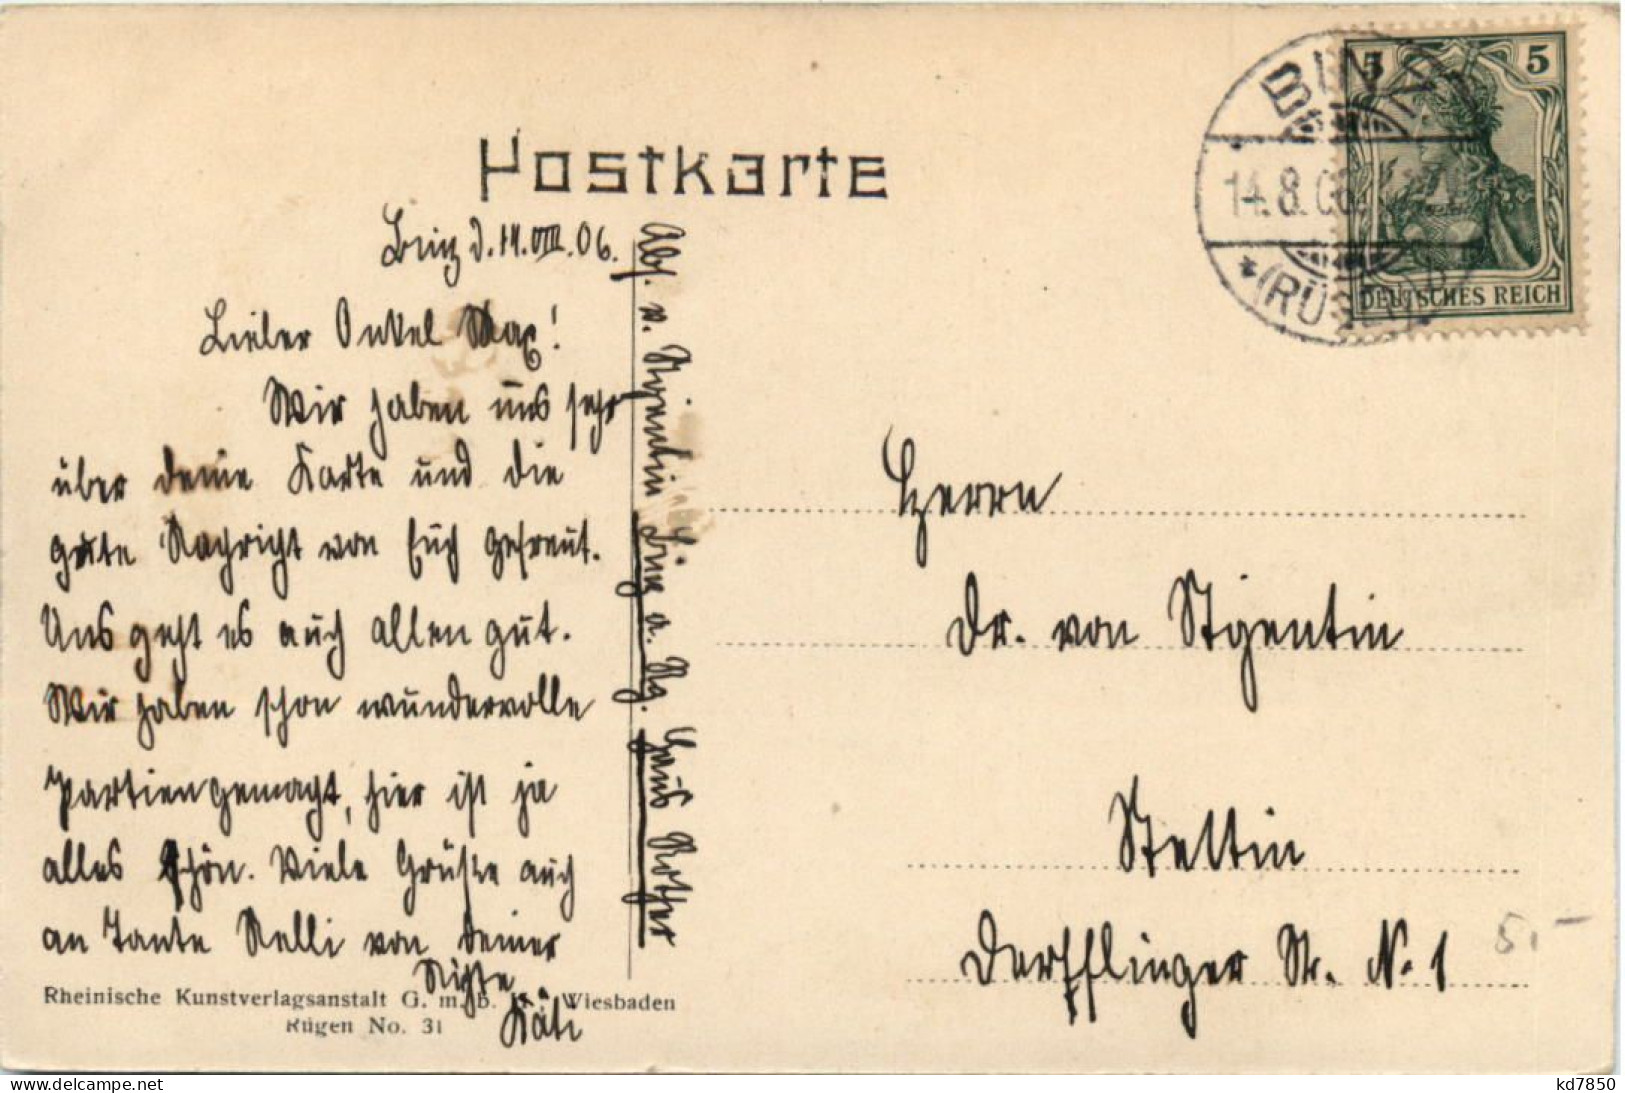 Postkarte
Binz d. 14. VIII. 06.
Lieber Onkel Max!
Wir haben uns sehr
über deine Karte und die
gute Nachricht von Euch gefreut.
Uns geht es auch allen gut.
Wir haben schon wundervolle
Partien gemacht, hier ist ja
alles schön. Viele Grüße auch
an Tante Nelli von Deiner
Nichte
Käti
Abs. v. Stgentin Binz a. Rg. Haus Rother
Rheinische Kunstverlagsanstalt G. m. b. H., Wiesbaden
Rügen No. 31
BINZ
14.8.06.
* (RÜGEN)
5 5
DEUTSCHES REICH
Herrn
Dr. von Stgentin
Stettin
Derfflinger Str. No. 1
5,–
kd7850
www.delcampe.net